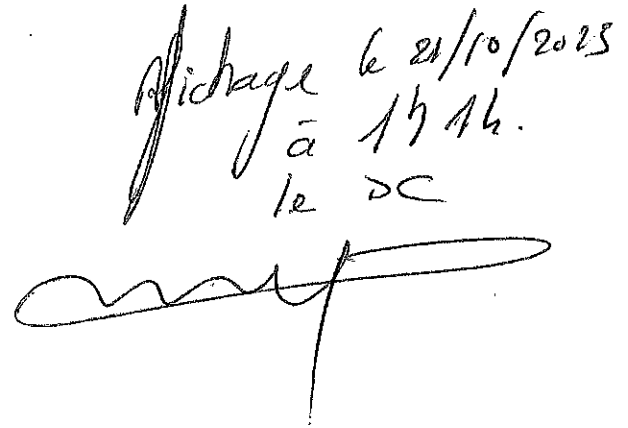 Affichage le 21/10/2025
à 14h 14.
le DC